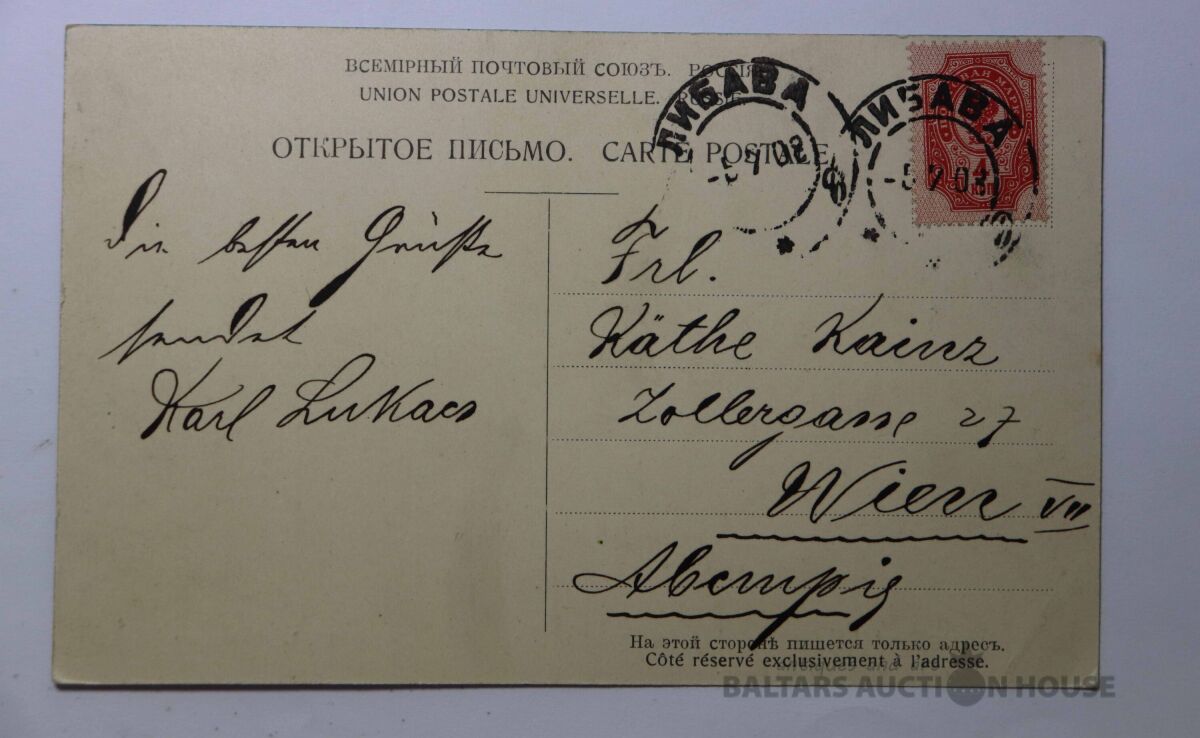 ВСЕМІРНЫЙ ПОЧТОВЫЙ СОЮЗЪ. РОССІЯ
UNION POSTALE UNIVERSELLE. RUSSIE
ОТКРЫТОЕ ПИСЬМО. CARTE POSTALE
ЛИБАВА
-5 7 02
ЛИБАВА
-5 7 02
4
Die besten Grüße
sendet
Karl Lukacs
Frl.
Käthe Kainz
Zollergasse 27
Wien VII
Австрія
На этой сторонѣ пишется только адресъ.
Côté réservé exclusivement à l'adresse.
BALTARS AUCTION HOUSE